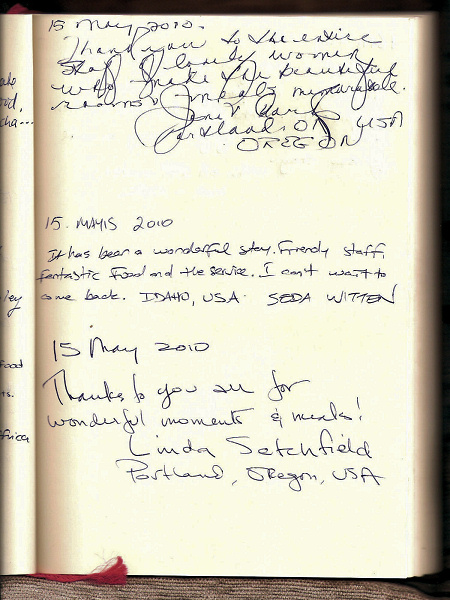 15 May 2010.
Thank you to the entire
staff of lovely women
who make the beautiful
rooms & meals memorable.
Janet
Portland, OR USA
OREGON
15. MAYIS 2010
It has been a wonderful stay. Friendly staff,
fantastic Food and the service. I can't wait to
come back. IDAHO, USA. SEDA WITTEN
15 May 2010
Thanks to you all for
wonderful moments & meals!
Linda Setchfield
Portland, Oregon, USA
ood,
cha...
ley
Food
ts.
frica